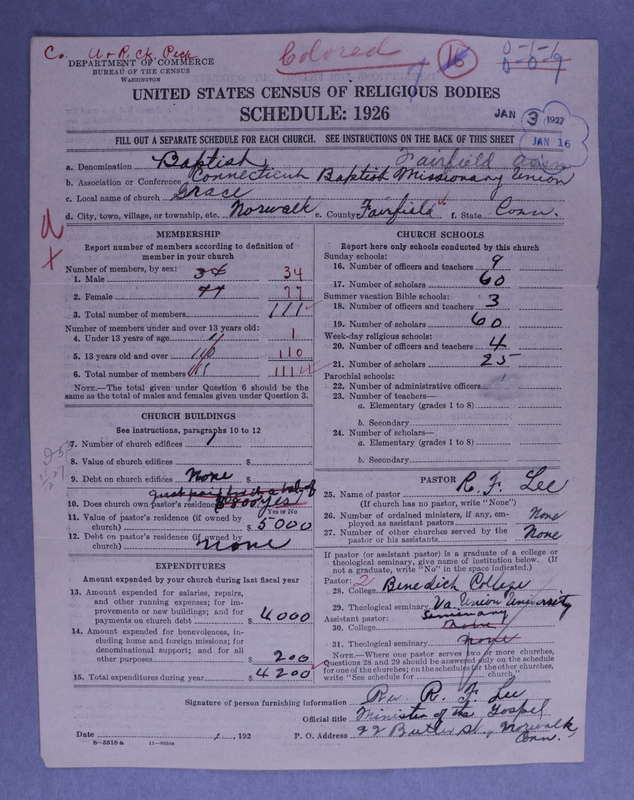 Co.
Colored
16
DEPARTMENT OF COMMERCE
BUREAU OF THE CENSUS
WASHINGTON
UNITED STATES CENSUS OF RELIGIOUS BODIES
SCHEDULE: 1926
JAN 3 1927
JAN 16
FILL OUT A SEPARATE SCHEDULE FOR EACH CHURCH. SEE INSTRUCTIONS ON THE BACK OF THIS SHEET
a. Denomination Baptist Fairfield
b. Association or Conference Connecticut Baptist Missionary Union
c. Local name of church Grace
d. City, town, village, or township, etc. Norwalk e. County Fairfield f. State Conn.
MEMBERSHIP
Report number of members according to definition of
member in your church
Number of members, by sex:
1. Male 34 34
2. Female 77 77
3. Total number of members 111
Number of members under and over 13 years old:
4. Under 13 years of age 1
5. 13 years old and over 110 110
6. Total number of members 111 111
NOTE.—The total given under Question 6 should be
the same as the total of males and females given under Question 3.
CHURCH BUILDINGS
See instructions, paragraphs 10 to 12
7. Number of church edifices 1
8. Value of church edifices $
9. Debt on church edifices None $
10. Does church own pastor's residence? yes
Yes or No
11. Value of pastor's residence (if owned by
church) $ 5000
12. Debt on pastor's residence (if owned by
church) None $
EXPENDITURES
Amount expended by your church during last fiscal year
13. Amount expended for salaries, repairs,
and other running expenses; for im-
provements or new buildings; and for
payments on church debt $ 4000
14. Amount expended for benevolences, in-
cluding home and foreign missions; for
denominational support; and for all
other purposes $ 200
15. Total expenditures during year $ 4200
CHURCH SCHOOLS
Report here only schools conducted by this church
Sunday schools:
16. Number of officers and teachers 9
17. Number of scholars 60
Summer vacation Bible schools:
18. Number of officers and teachers 3
19. Number of scholars 60
Week-day religious schools:
20. Number of officers and teachers 4
21. Number of scholars 25
Parochial schools:
22. Number of administrative officers
23. Number of teachers—
a. Elementary (grades 1 to 8)
b. Secondary
24. Number of scholars—
a. Elementary (grades 1 to 8)
b. Secondary
PASTOR
25. Name of pastor R. F. Lee
(If church has no pastor, write "None")
26. Number of ordained ministers, if any, em-
ployed as assistant pastors None
27. Number of other churches served by the
pastor or his assistants None
If pastor (or assistant pastor) is a graduate of a college or
theological seminary, give name of institution below. (If
not a graduate, write "No" in the space indicated.)
Pastor: 2
28. College Benedict College
29. Theological seminary Va. Union University
Assistant pastor: Seminary
30. College None
31. Theological seminary None
NOTE.—Where one pastor serves two or more churches,
Questions 28 and 29 should be answered only on the schedule
for one of the churches; on the schedules for the other churches,
write "See schedule for church."
Signature of person furnishing information Rev. R. F. Lee
Official title Minister of the Gospel
Date , 192 P. O. Address 22 Butler St., Norwalk,
Conn.
8—5518a